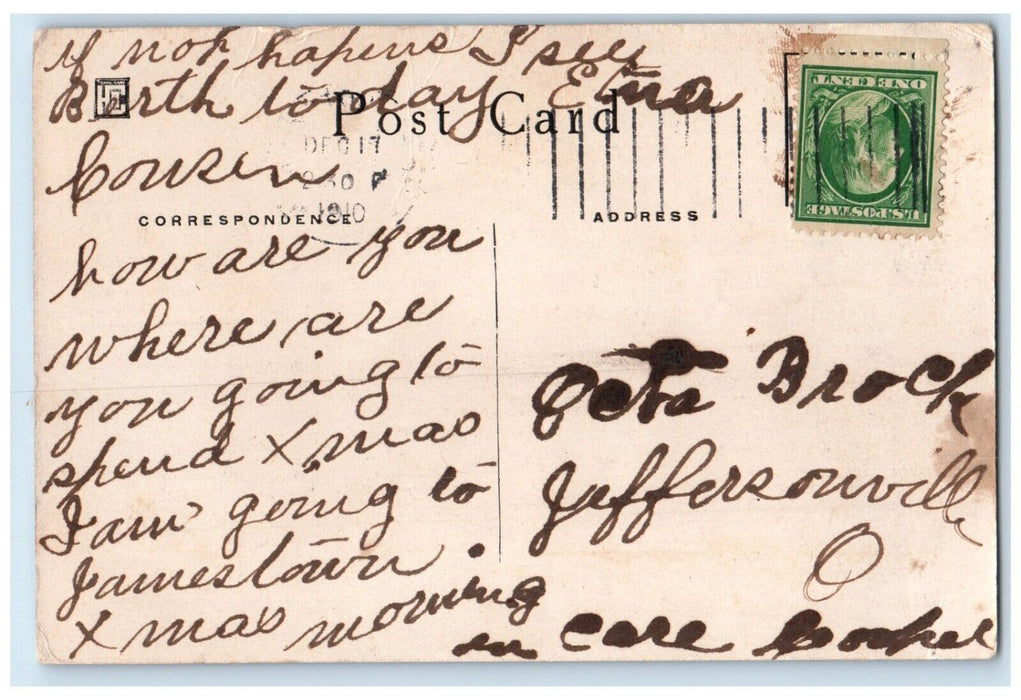 if not hapens I see
Berth to day Etna
Post Card
Cousen
DEC 17
2 30 P
1910
CORRESPONDENCE
how are you
where are
you going to
spend Xmas
I am going to
Jamestown.
Xmas morning
ADDRESS
ONE CENT
U.S. POSTAGE
Octa Brock
Jeffersonville
O
in care